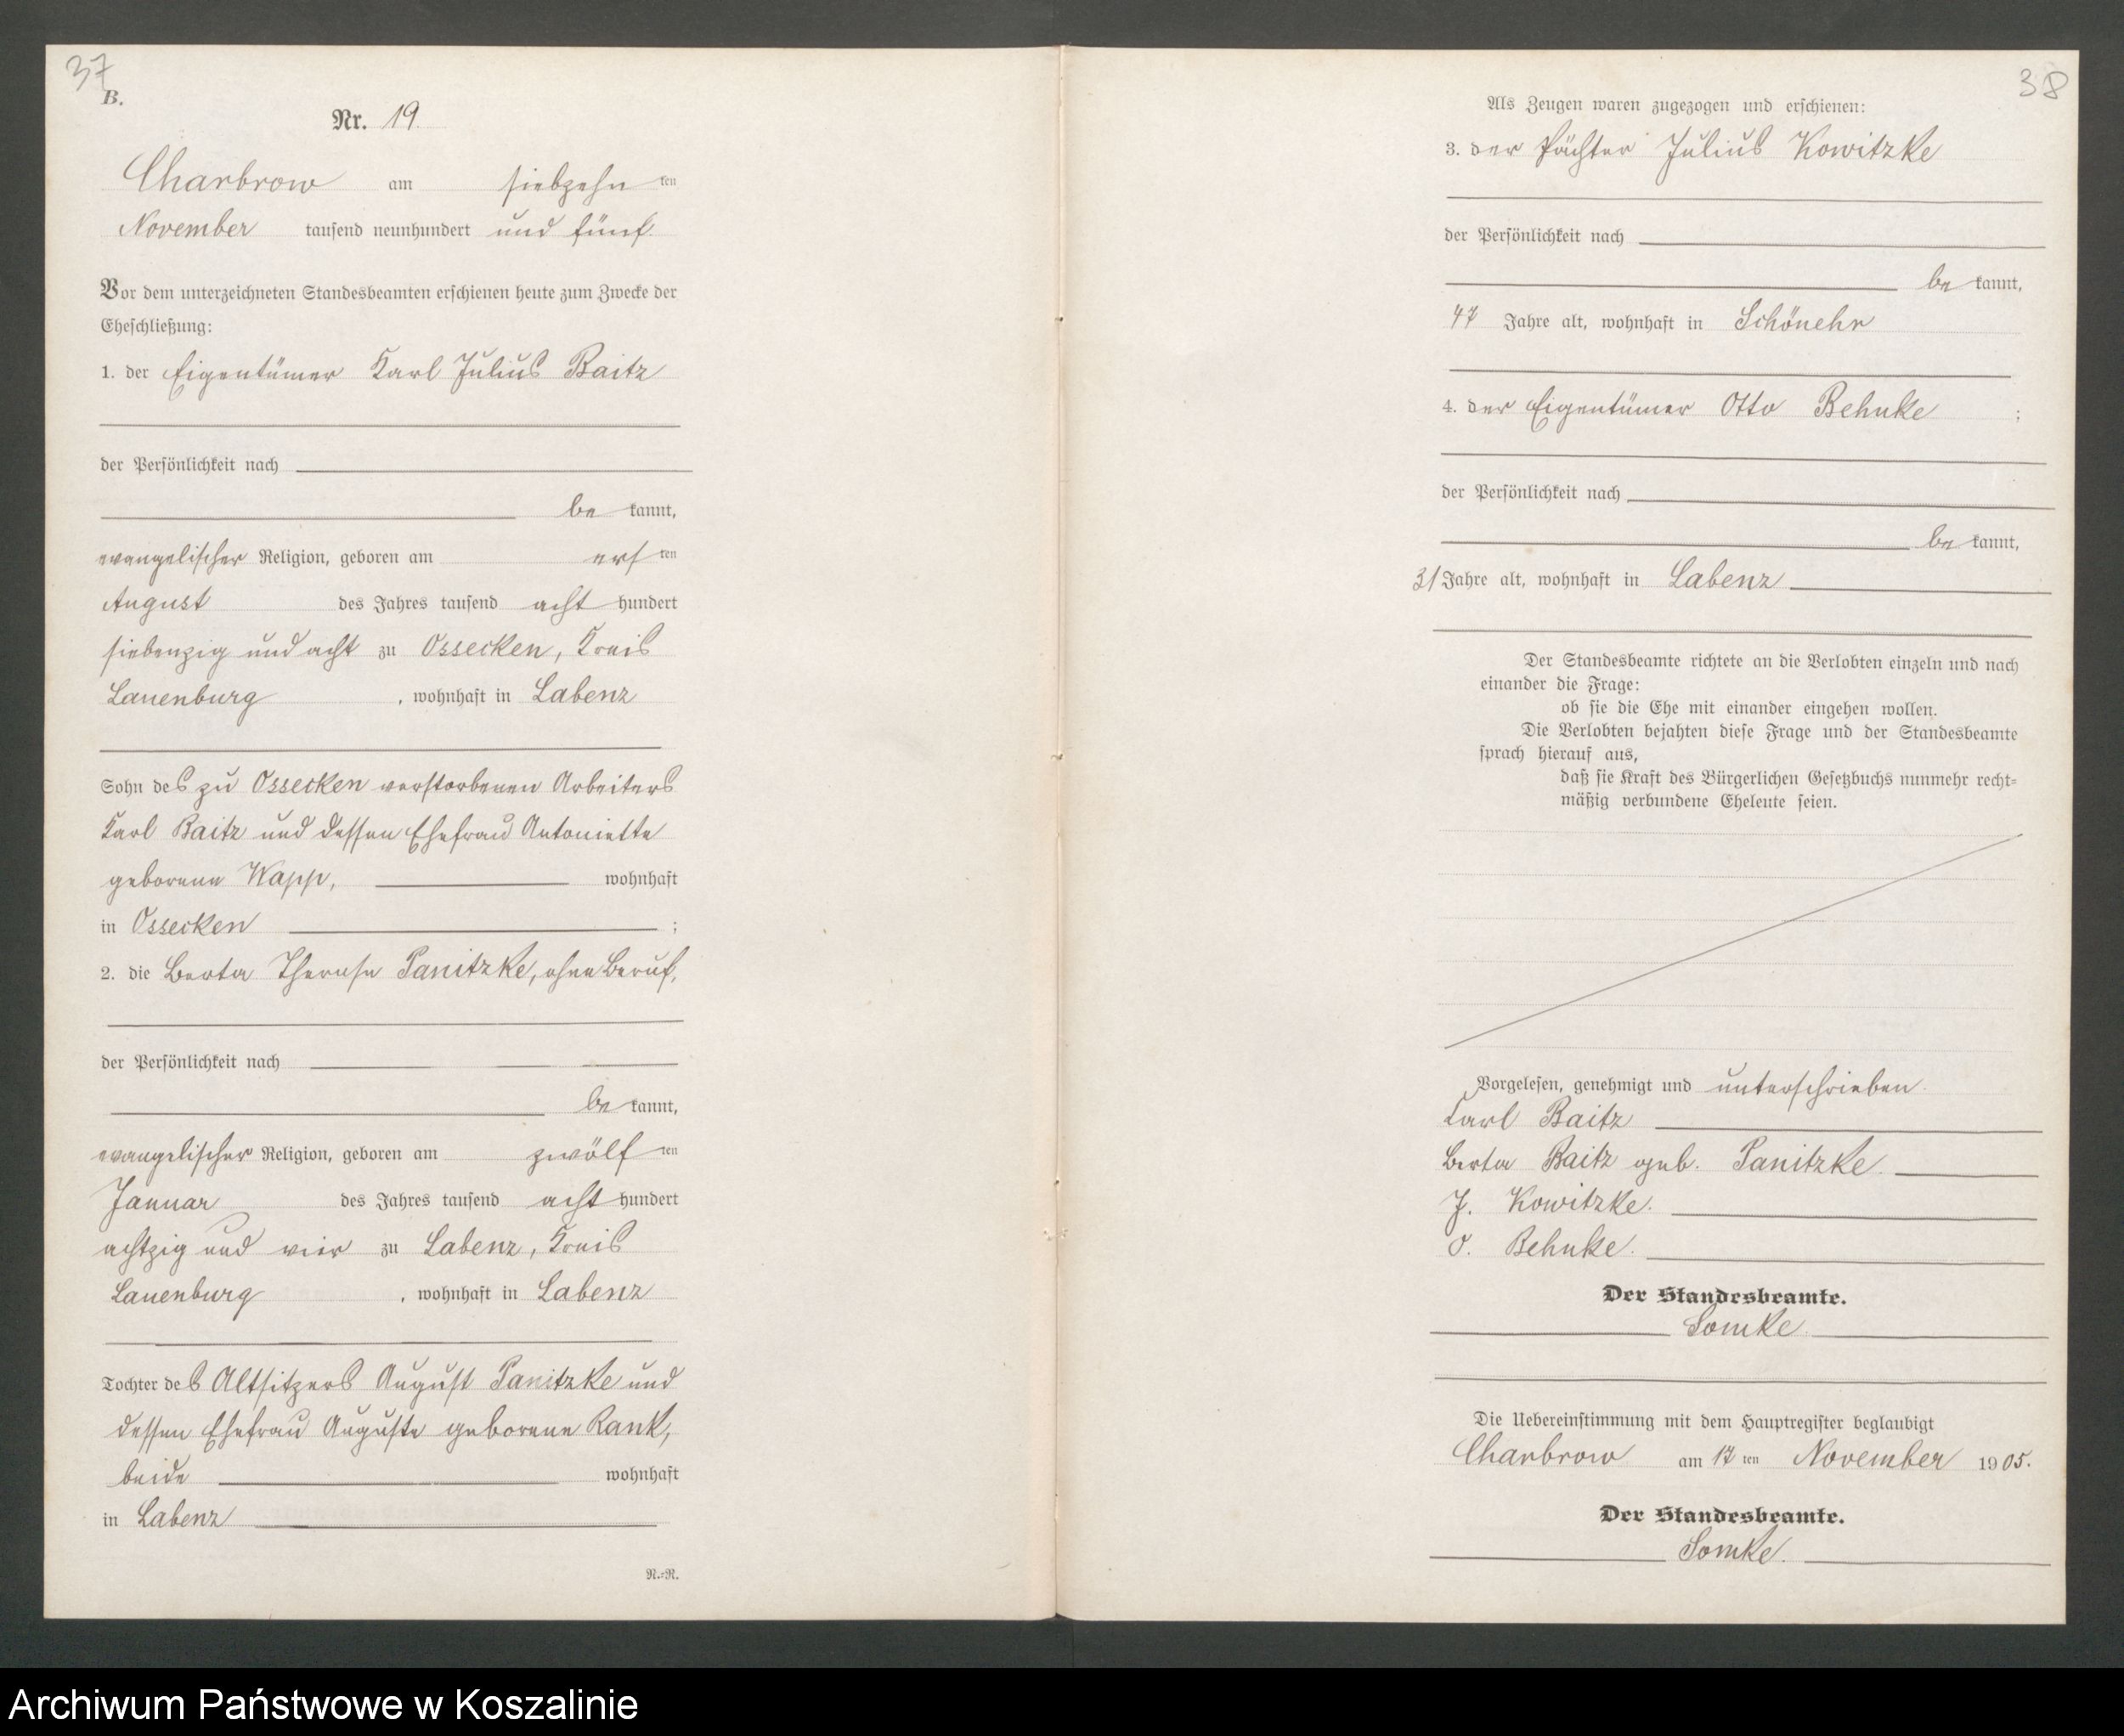 37
B.
Nr. 19.
Charbrow am siebzehn ten
November tausend neunhundert und fünf.
Vor dem unterzeichneten Standesbeamten erschienen heute zum Zwecke der
Eheschließung:
1. der Eigentümer Karl Julius Baitz
der Persönlichkeit nach
be kannt,
evangelischer Religion, geboren am ersten
August des Jahres tausend acht hundert
siebenzig und acht zu Ossecken, Kreis
Lauenburg, wohnhaft in Labenz
Sohn des zu Ossecken verstorbenen Arbeiters
Karl Baitz und dessen Ehefrau Antoniette
geborene Wapp, wohnhaft
in Ossecken ;
2. die Berta Therese Panitzke, ohne Beruf,
der Persönlichkeit nach
be kannt,
evangelischer Religion, geboren am zwölf ten
Januar des Jahres tausend acht hundert
achtzig und vier zu Labenz, Kreis
Lauenburg, wohnhaft in Labenz
Tochter des Altsitzers August Panitzke und
dessen Ehefrau Auguste geborene Rank,
beide wohnhaft
in Labenz
N.=N.
38
Als Zeugen waren zugezogen und erschienen:
3. der Pächter Julius Kowitzke
der Persönlichkeit nach
be kannt,
47 Jahre alt, wohnhaft in Schönehr
4. der Eigentümer Otto Behnke ;
der Persönlichkeit nach
be kannt,
31 Jahre alt, wohnhaft in Labenz
Der Standesbeamte richtete an die Verlobten einzeln und nach
einander die Frage:
ob sie die Ehe mit einander eingehen wollen.
Die Verlobten bejahten diese Frage und der Standesbeamte
sprach hierauf aus,
daß sie Kraft des Bürgerlichen Gesetzbuchs nunmehr recht=
mäßig verbundene Eheleute seien.
Vorgelesen, genehmigt und unterschrieben.
Karl Baitz
Berta Baitz geb. Panitzke.
J. Kowitzke.
O. Behnke.
Der Standesbeamte.
Somke.
Die Uebereinstimmung mit dem Hauptregister beglaubigt
Charbrow am 17 ten November 1905.
Der Standesbeamte.
Somke.
Archiwum Państwowe w Koszalinie